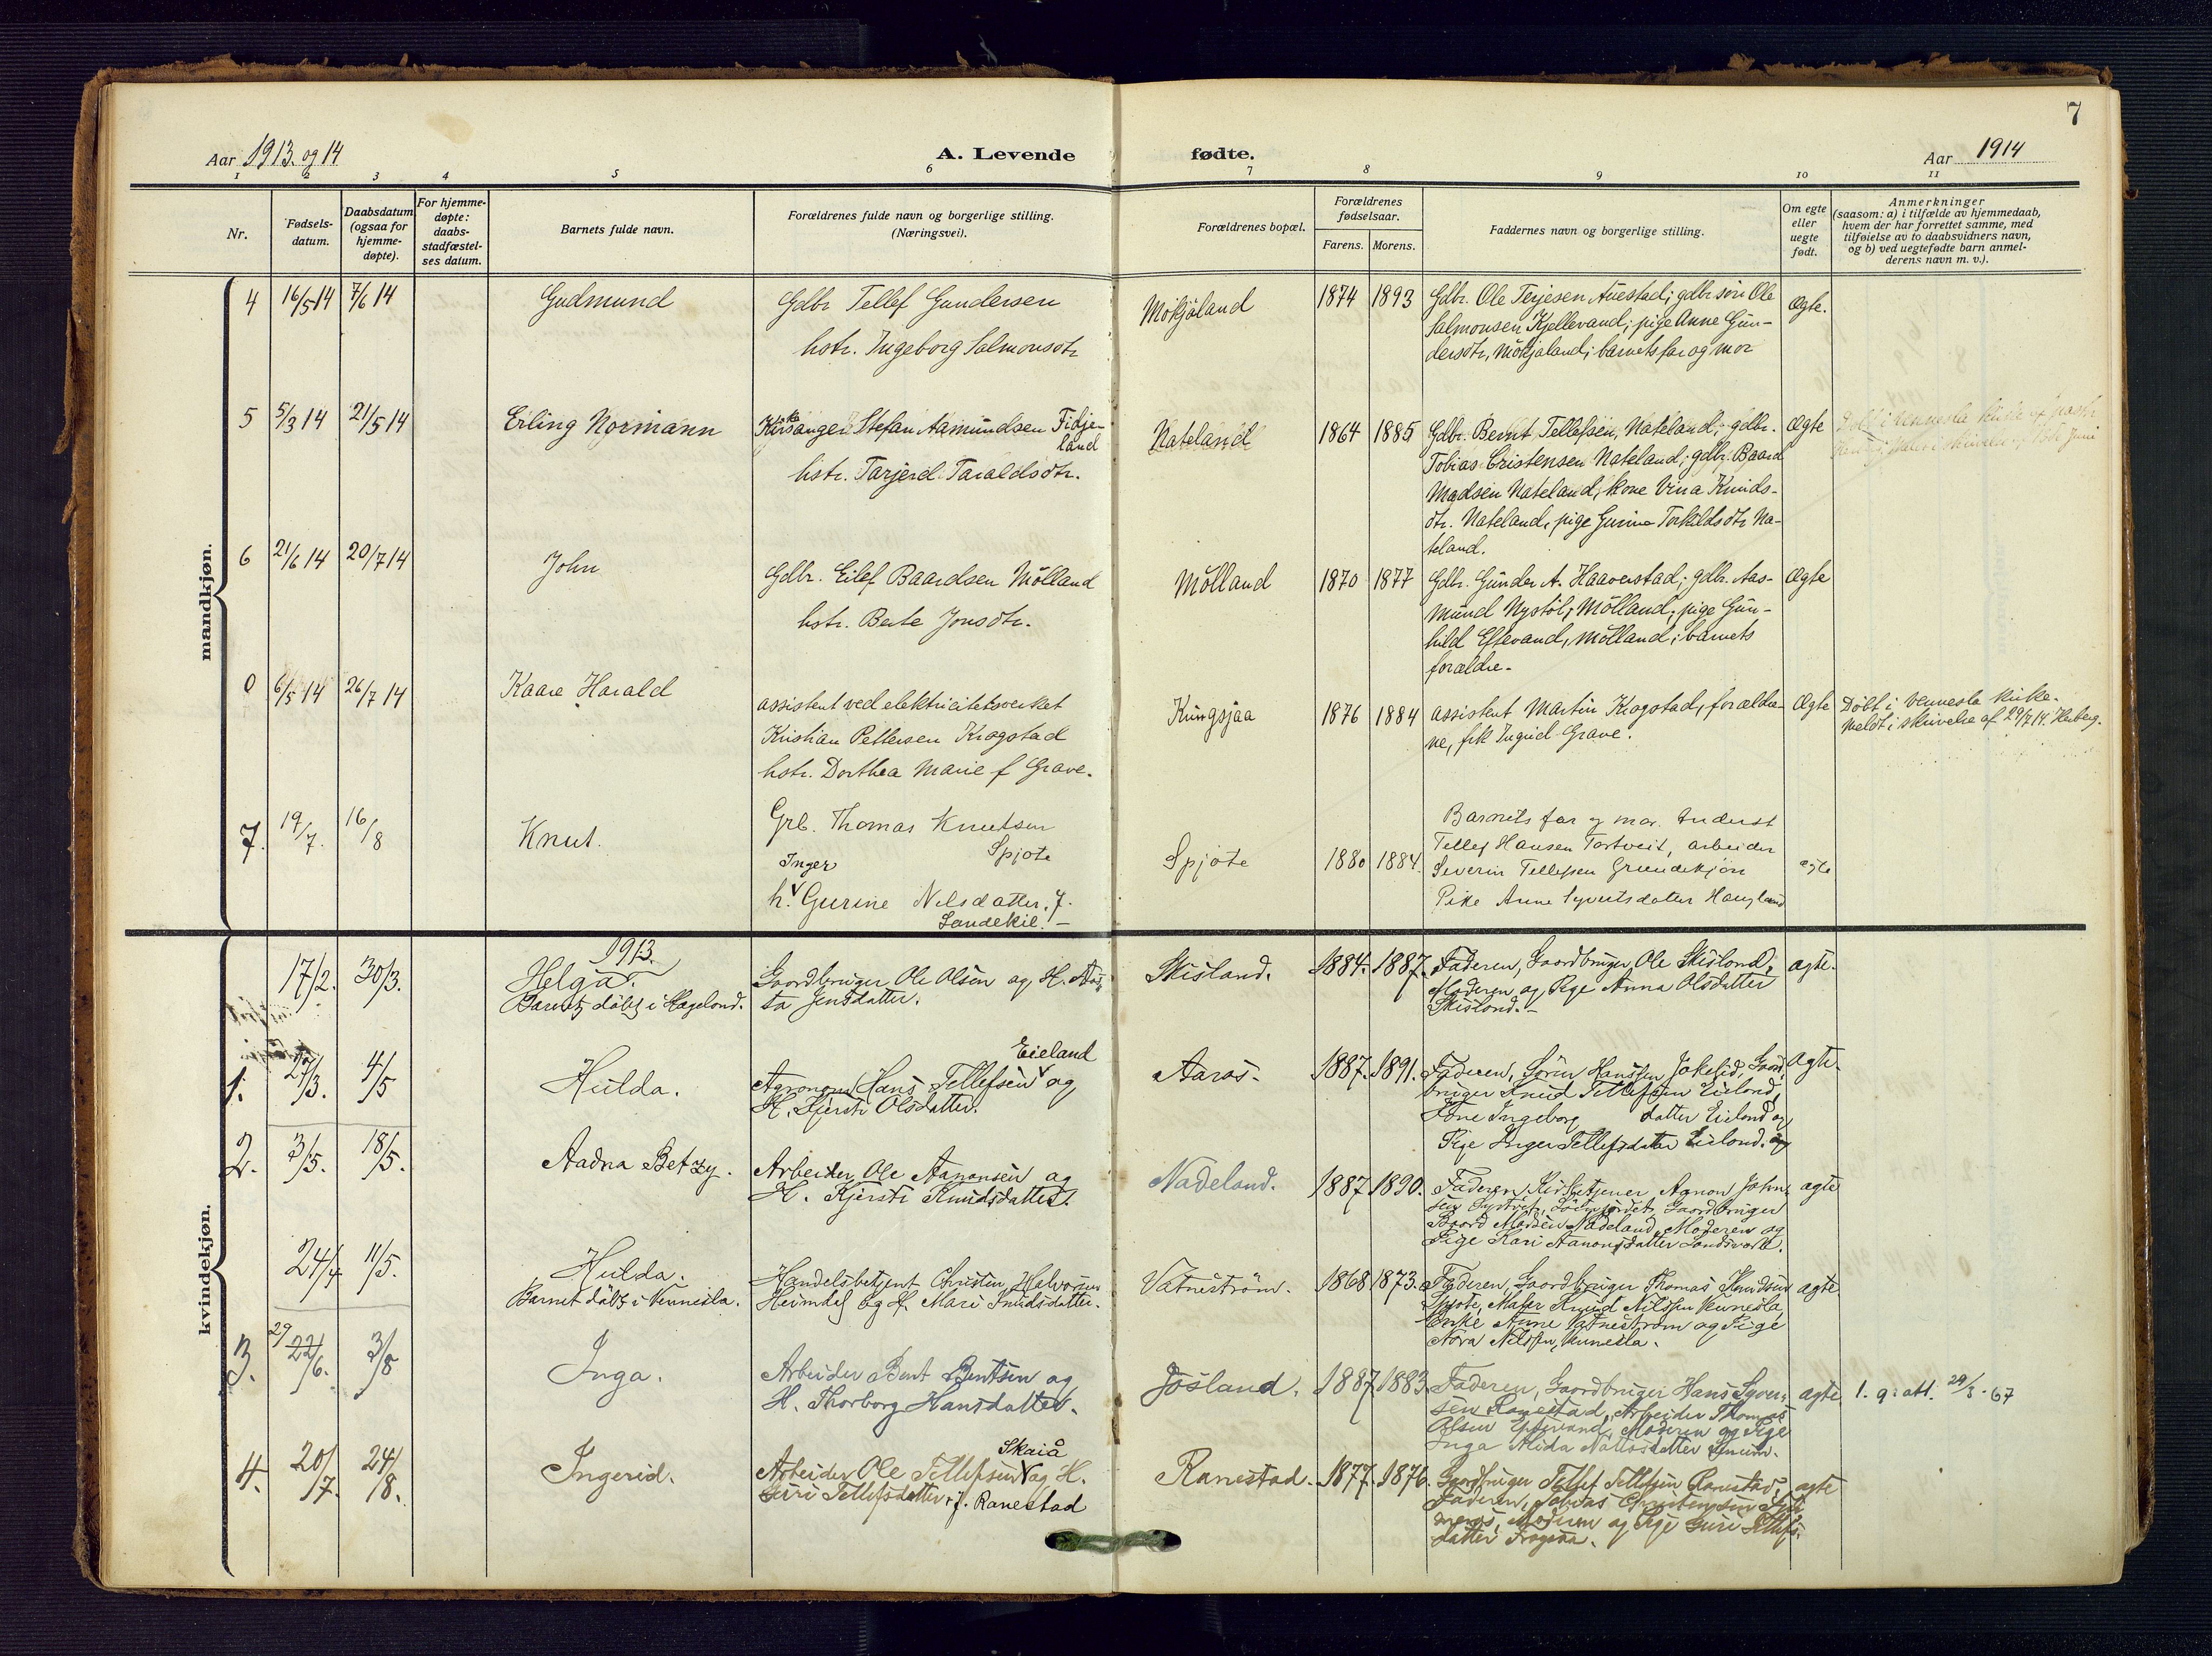 7
Aar 1913. og 14
A. Levende fødte.
Aar 1914
1 2 3 4 5 6 7 8 9 10 11
Nr.
Fødsels-
datum.
Daabsdatum
(ogsaa for
hjemme-
døpte).
For hjemme-
døpte:
daabs-
stadfæstel-
ses datum.
Barnets fulde navn.
Forældrenes fulde navn og borgerlige stilling.
(Næringsvei).
Forældrenes bopæl.
Forældrenes
fødselsaar.
Farens. Morens.
Faddernes navn og borgerlige stilling.
Om egte
eller
uegte
født.
Anmerkninger
(saasom: a) i tilfælde av hjemmedaab,
hvem der har forrettet samme, med
tilføielse av to daabsvidners navn,
og b) ved uegtefødte barn anmel-
derens navn m. v.).
mandkjøn.
4 16/5 14 7/6 14 Gudmund
Gdbr Tellef Gundersen
hstr. Ingeborg Salmonsdtr
Mökjåland 1874 1893
Gdbr. Ole Terjesen Auestad; gdbr søn Ole
Salmonsen Kjellevand; pige Anne Gun-
dersdtr, Mökjaland; barnets far og mor
Ægte.
5 5/3 14 21/5 14 Erling Normann
Kirkesanger Stefan Aamundsen Fidje-
land
hstr. Tarjerd Taraldsdtr.
Nateland 1864 1885
Gdbr. Bernt Tellefsen, Nateland; gdbr.
Tobias Cristensen Nateland; gdbr. Baard
Madsen Nateland; kone Vina Knuds-
dtr. Nateland, pige Gurine Torkildsdtr Na-
teland.
Ægte
Døbt i Vennesla kirke af
6 21/6 14 20/7 14 John
Gdbr. Eilef Baardsen Mölland
hstr. Berte Jonsdtr.
Mölland 1870 1877
Gdbr. Gunder A. Haaverstad; gdbr. Aas-
mund Nystöl, Mölland; pige Gun-
hild Eftevand, Mölland; barnets
forældre.
Ægte
0 6/5 14 26/7 14 Kaare Harald
assistent ved elektricitetsverket
Kristian Pettersen Krogstad
hstr. Dorthea Marie f Grave.
Kringsjaa 1876 1884
assistent Martin Krogstad, forældre-
ne, frk Ingrid Grave.
Ægte
Döbt i Vennesla kirke.
Meldt i skrivelse af 29/7 14. Herberg.
7. 19/7. 16/8 Knut.
Grb. Thomas Knutsen
Spjote
Inger
h. Gurine Nilsdatter, f.
Sandekil. -
Spjote 1880 1884.
Barnets far og mor. Inderst
Tellef Hansen Tortveit, arbeider
Severin Tellefsen Grundekjön
Pike Anne Syvertsdatter Haugland
ægte
kvindekjøn.
1913.
17/2. 30/3. Helga.
Barnet döbt i Hægeland.
Gaardbruger Ole Olsen og H. Aas-
ta Jensdatter.
Skisland. 1884. 1887.
Faderen, Gaardbruger Ole Skisland,
Moderen og Pige Anna Olsdatter
Skisland. -
ægte.
1. 27/3. 4/5 Hulda.
Eieland
Agronom Hans Tellefsen og
H. Kjersti Olsdatter.
Aaros. 1887. 1891.
Faderen, Sören Hanssen Jokelid, Gaard-
bruger Knud Tellefsen Eieland,
Kone Ingeborg datter Eieland og
Pige Inger Tellefsdatter Eieland.
ægte.
2. 3/5. 18/5. Aadna Betzy.
Arbeider Ole Aanonsen og
H. Kjersti Knudsdatter.
Nadeland. 1887 1890.
Faderen, Kirketjener Aanon John-
sen Gaardbruger
Baard Madsen Nadeland, Moderen og
Pige Kari Aanonsdatter Sandsvark.
ægte
24/4 11/5. Hulda.
Barnet döbt i Vennesla.
Handelsbetjent Christen Halvorsen
Heimdal og H. Mari Knudsdatter.
Vatneström. 1868 1873.
Faderen, Gaardbruger Thomas Knudsen
Spjote, Maler Knud Nilssen Vennesla,
Enke Anne Vatneström og Pige
Nora Nilssen, Vennesla.
ægte
3. 29 22/6. 3/8 Inga.
Arbeider Bent Bentsen og
H. Thorborg Hansdatter.
Jösland. 1887 1883
Faderen, Gaardbruger Hans Syvert-
sen Ranestad, Arbeider Thomas
Olsen Eftevand, Moderen og Pige
Inga Alida
ægte
1. g. att. 29/3 - 67
4. 20/7. 24/8. Ingerid.
Skaiå
Arbeider Ole Tellefsen og H.
Guri Tellefsdatter, f. Ranestad
Ranestad. 1877. 1876.
Gaardbruger Tellef Tellefsen Ranestad,
Faderen, Tobias Christensen
Moderen og Pige Guri Tellefs-
datter Frogena.
ægte